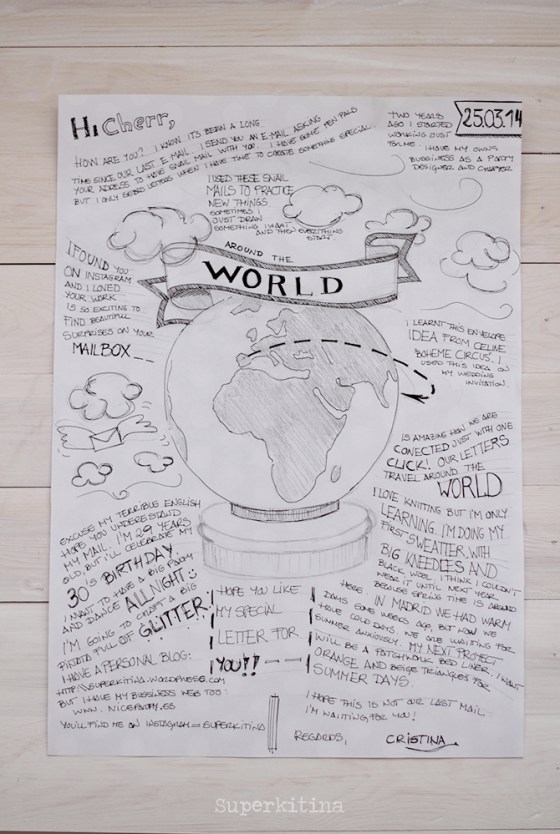 Hi Cherr,
25.03.14
HOW ARE YOU? I KNOW IT'S BEAN A LONG
TIME SINCE OUR LAST E-MAIL. I SEND YOU AN E-MAIL ASKING
YOUR ADRESS TO HAVE SNAIL MAIL WITH YOU. I HAVE SOME PEN PALS
BUT I ONLY SEND LETTERS WHEN I HAVE TIME TO CREATE SOMETHING SPECIAL.
TWO YEARS
AGO I STARTED
WORKING JUST
FOR ME. I HAVE MY OWN
BUSSINESS AS A PARTY
DESIGNER AND CRAFTER
I USED THESE SNAIL
MAILS TO PRACTICE
NEW THINGS.
SOMETIMES I
JUST DRAW
SOMETHING I WANT
AND THEN EVERYTHING
START
I FOUND YOU
ON INSTAGRAM
AND I LOVED
YOUR WORK
IS SO EXCITING TO
FIND BEAUTIFUL
SURPRISES ON YOUR
MAILBOX...
AROUND THE
WORLD
I LEARNT THIS ENVELOPE
IDEA FROM CELINE,
BOHEME CIRCUS. I
USED THIS IDEA ON
MY WEDDING
INVITATION.
IS AMAZING HOW WE ARE
CONECTED JUST WITH ONE
CLICK! OUR LETTERS
TRAVEL AROUND THE
WORLD
EXCUSE MY TERRIBLE ENGLISH
HOPE YOU UNDERESTAND
MY MAIL. I'M 29 YEARS
OLD, BUT I'LL CELEBRATE MY
30'S BIRTHDAY.
I WANT TO HAVE A BIG PARTY
AND DANCE ALL NIGHT :)
I'M GOING TO CRAFT A BIG
PIÑATA FULL OF GLITTER.
I HAVE A PERSONAL BLOG:
HTTP://SUPERKITINA.WORDPRESS.COM
BUT I HAVE MY BUSSINESS WEB TOO:
WWW. NICEPARTY.ES
YOU'LL FIND ME ON INSTAGRAM = SUPERKITINA
HOPE YOU LIKE
MY SPECIAL
LETTER FOR
YOU!!
I LOVE KNITTING BUT I'M ONLY
LEARNING. I'M DOING MY
FIRST SWEATTER WITH
BIG KNEEDLES AND
BLACK WOOL. I THINK I COULDN'T
WEAR IT UNTIL NEXT YEAR
BECAUSE SPRING TIME IS AROUND
HERE. IN MADRID WE HAD WARM
DAYS SOME WEEKS AGO, BUT NOW WE
HAVE COLD DAYS. WE ARE WAITING FOR
SUMMER ANXIOUSLY. MY NEXT PROJECT
WILL BE A PATCHWORK BED LINER. I WANT
ORANGE AND BEIGE TRIANGLES FOR
SUMMER DAYS.
I HOPE THIS IS NOT OUR LAST MAIL.
I'M WAITTING FOR YOU!
REGARDS,
CRISTINA
Superkitina